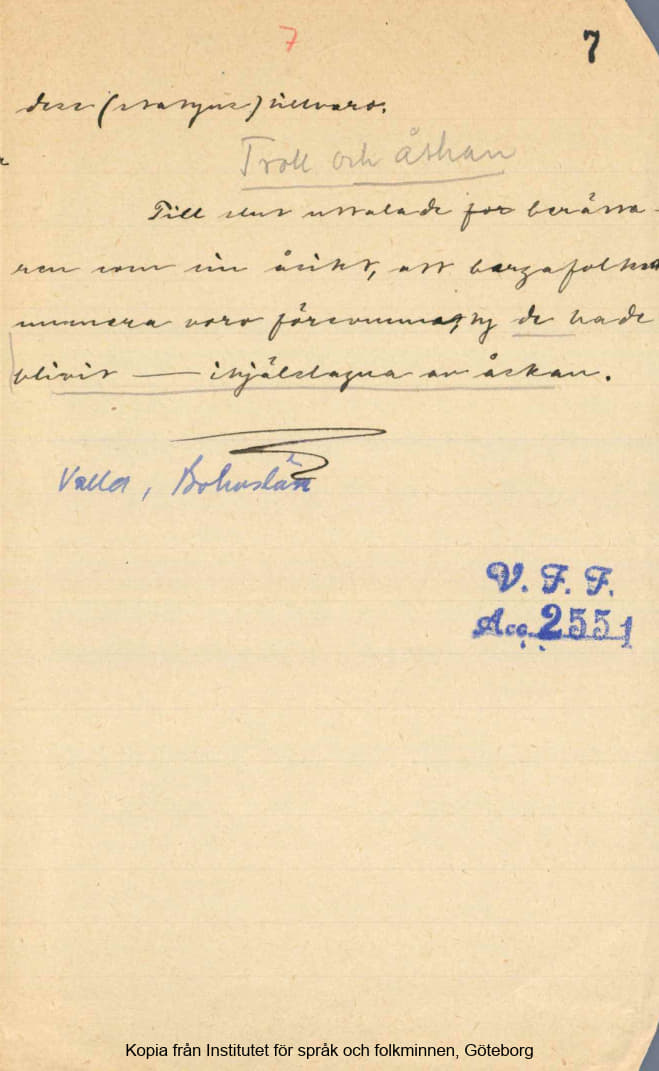 7
7
dess (statyns) tillvaro.
Troll och åskan
Till slut uttalade för berätta-
ren som sin åsikt, att bergafolken
nummera voro försvunna, ty de hade
blivit — ihjälslagna av åskan.
Valla, Bohuslän
V. F. F.
Acc. 2551
Kopia från Institutet för språk och folkminnen, Göteborg